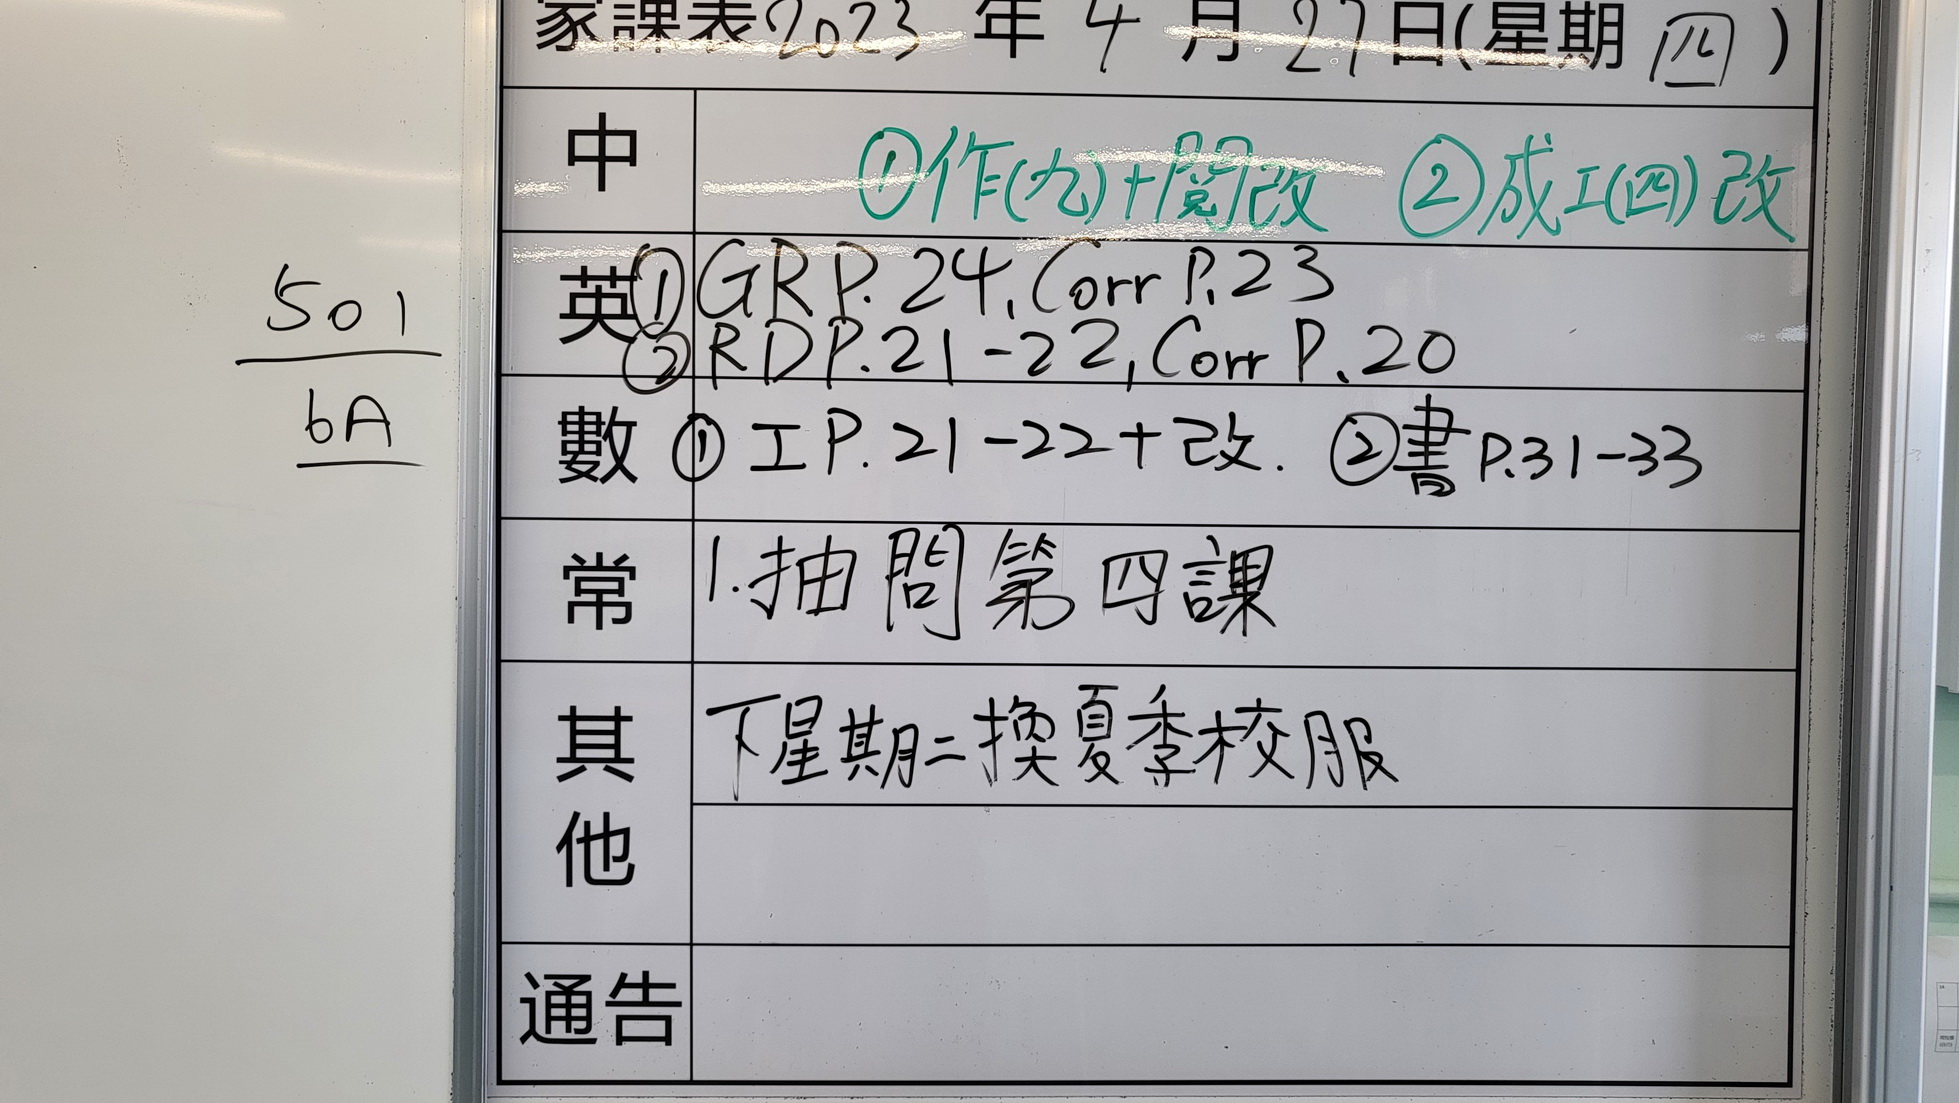 家課表2023年4月27日(星期四)
中 ①作(九)+閱改 ②成工(四)改
英 ①GR P.24, Corr P.23
②RD P.21-22, Corr P.20
數 ①工P.21-22+改. ②書P.31-33
常 1.抽問第四課
其他 下星期二換夏季校服
通告
501
6A